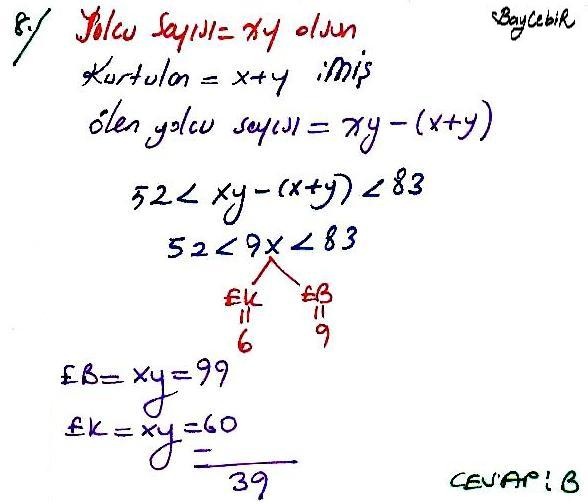 8./ Yolcu Sayısı = xy olsun
BayCebir
Kurtulan = x+y imiş
ölen yolcu sayısı = xy - (x+y)
52 < xy - (x+y) < 83
52 < 9x < 83
EK EB
= =
6 9
EB = xy = 99
EK = xy = 60
=
39
CEVAP: B